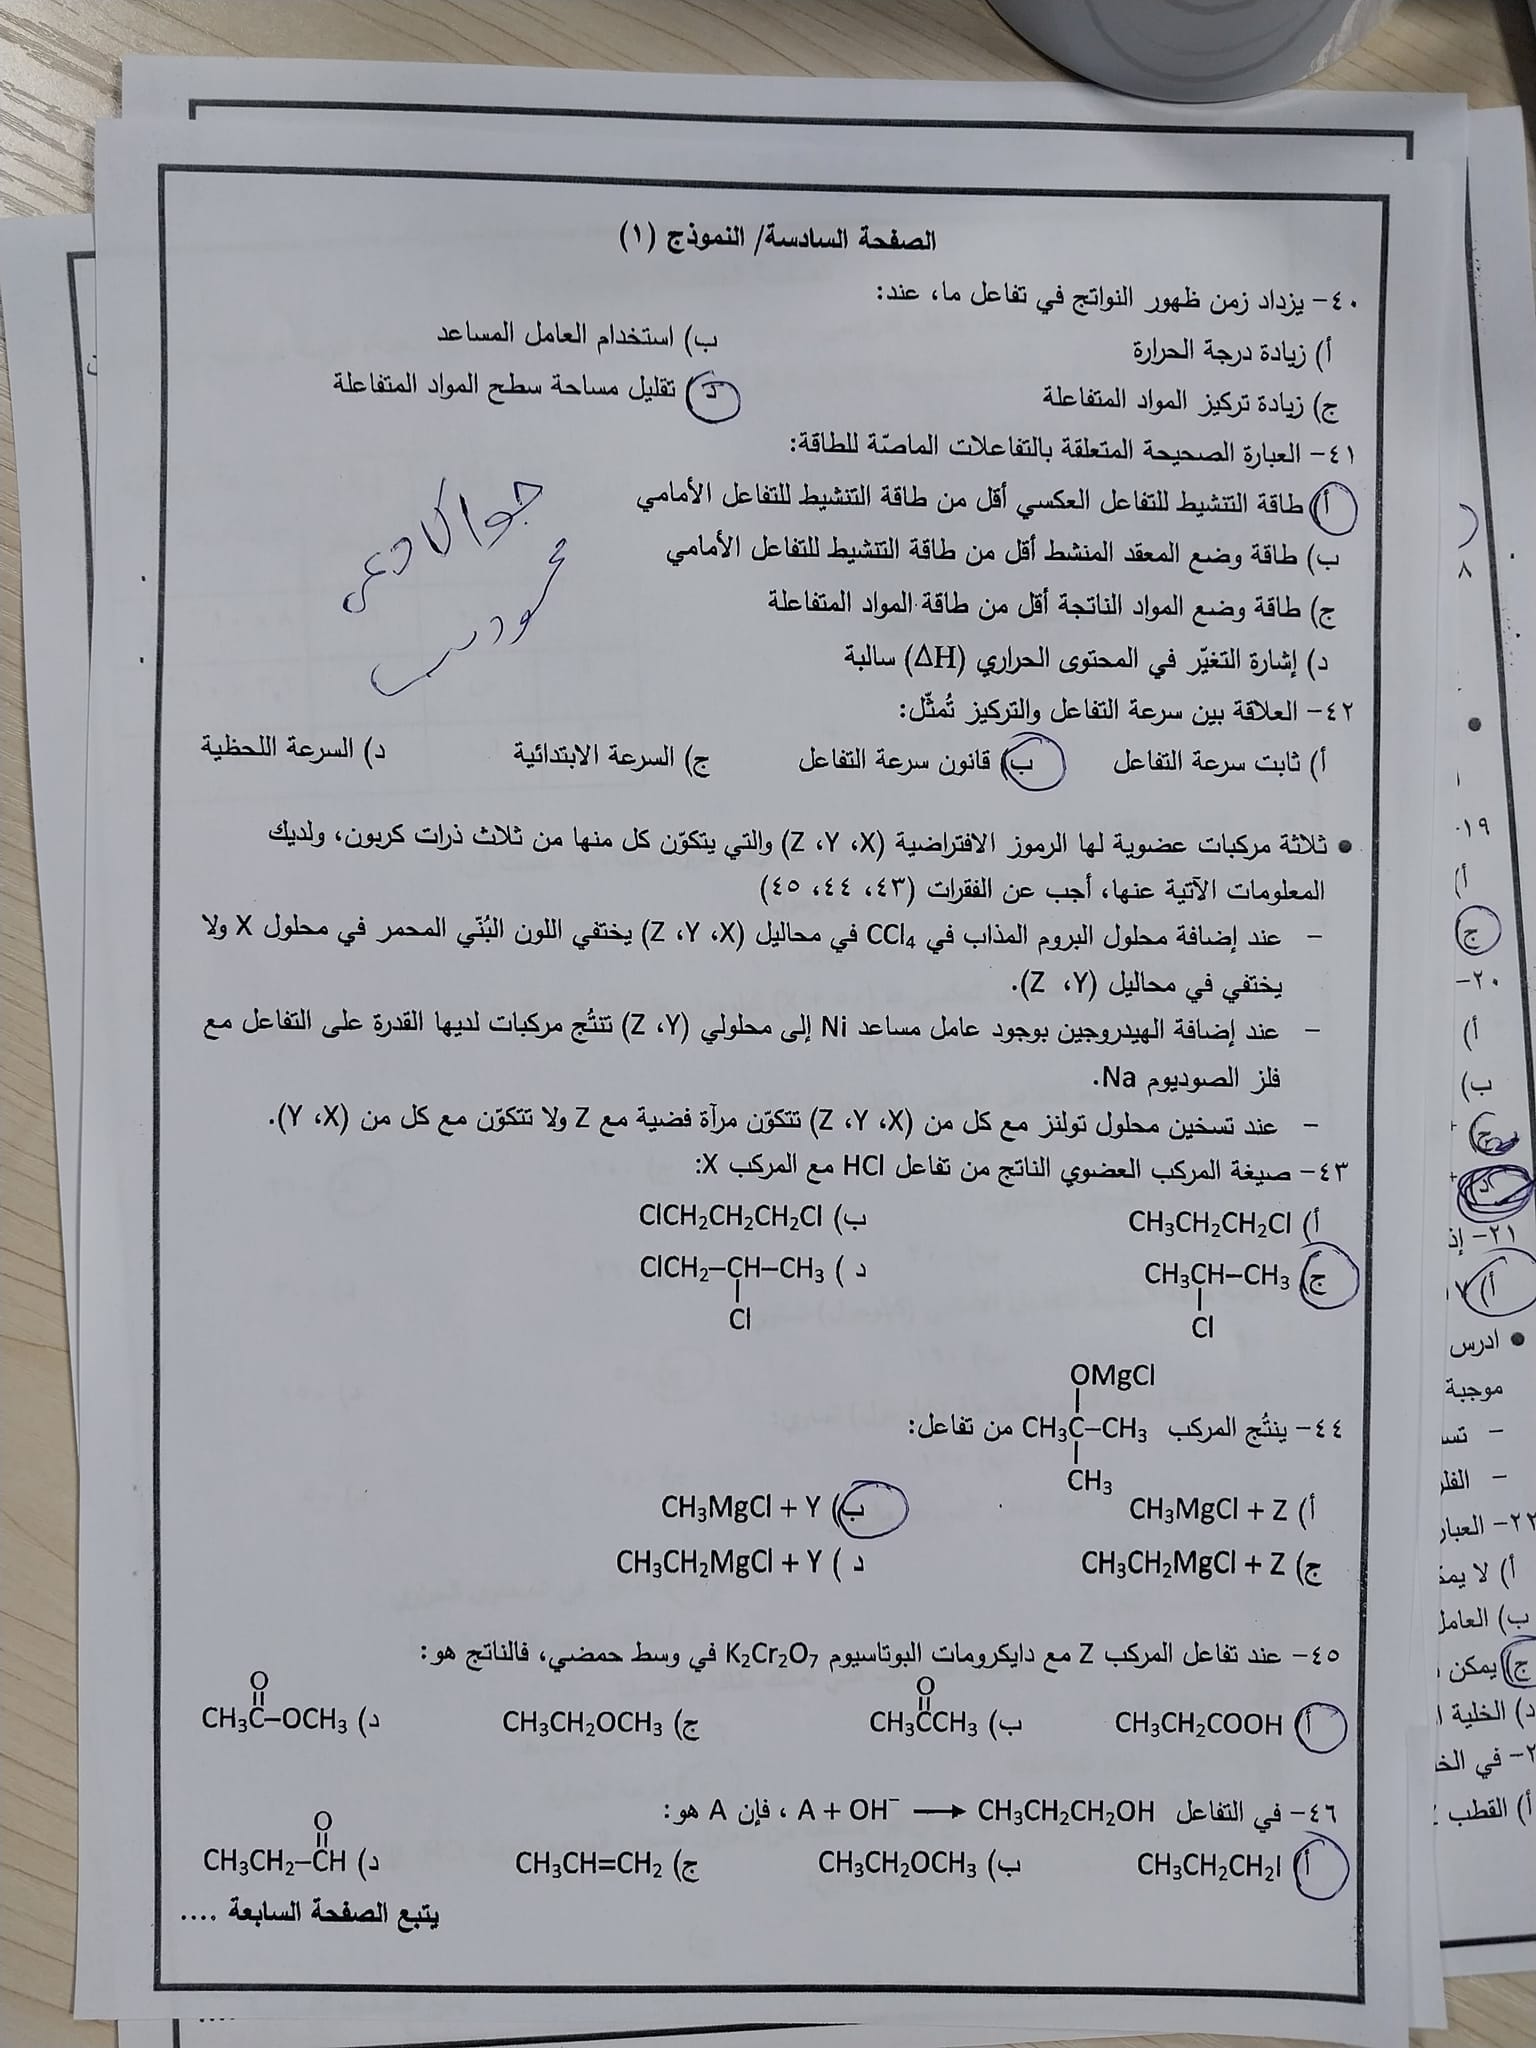 الصفحة السادسة/ النموذج (١)
٤٠- يزداد زمن ظهور النواتج في تفاعل ما، عند:
أ) زيادة درجة الحرارة
ب) استخدام العامل المساعد
ج) زيادة تركيز المواد المتفاعلة
د) تقليل مساحة سطح المواد المتفاعلة
٤١- العبارة الصحيحة المتعلقة بالتفاعلات الماصّة للطاقة:
أ) طاقة التنشيط للتفاعل العكسي أقل من طاقة التنشيط للتفاعل الأمامي
ب) طاقة وضع المعقد المنشط أقل من طاقة التنشيط للتفاعل الأمامي
ج) طاقة وضع المواد الناتجة أقل من طاقة المواد المتفاعلة
د) إشارة التغيّر في المحتوى الحراري (ΔH) سالبة
٤٢- العلاقة بين سرعة التفاعل والتركيز تُمثّل:
أ) ثابت سرعة التفاعل ب) قانون سرعة التفاعل ج) السرعة الابتدائية د) السرعة اللحظية
• ثلاثة مركبات عضوية لها الرموز الافتراضية (Z ،Y ،X) والتي يتكوّن كل منها من ثلاث ذرات كربون، ولديك
المعلومات الآتية عنها، أجب عن الفقرات (٤٣، ٤٤، ٤٥)
- عند إضافة محلول البروم المذاب في CCl₄ في محاليل (Z ،Y ،X) يختفي اللون البُنّي المحمر في محلول X ولا
يختفي في محاليل (Z ،Y).
- عند إضافة الهيدروجين بوجود عامل مساعد Ni إلى محلولي (Z ،Y) تنتُج مركبات لديها القدرة على التفاعل مع
فلز الصوديوم Na.
- عند تسخين محلول تولنز مع كل من (Z ،Y ،X) تتكوّن مرآة فضية مع Z ولا تتكوّن مع كل من (Y ،X).
٤٣- صيغة المركب العضوي الناتج من تفاعل HCl مع المركب X:
أ) CH₃CH₂CH₂Cl
ب) ClCH₂CH₂CH₂Cl
ج) CH₃CH–CH₃
Cl
د ) ClCH₂–CH–CH₃
Cl
OMgCl
٤٤- ينتُج المركب CH₃C–CH₃ من تفاعل:
CH₃
أ) CH₃MgCl + Z
ب) CH₃MgCl + Y
ج) CH₃CH₂MgCl + Z
د ) CH₃CH₂MgCl + Y
٤٥- عند تفاعل المركب Z مع دايكرومات البوتاسيوم K₂Cr₂O₇ في وسط حمضي، فالناتج هو:
أ) CH₃CH₂COOH
O
ب) CH₃CCH₃
ج) CH₃CH₂OCH₃
O
د) CH₃C–OCH₃
٤٦- في التفاعل A + OH⁻ ⟶ CH₃CH₂CH₂OH ، فإن A هو:
أ) CH₃CH₂CH₂I
ب) CH₃CH₂OCH₃
ج) CH₃CH=CH₂
O
د) CH₃CH₂–CH
يتبع الصفحة السابعة ....